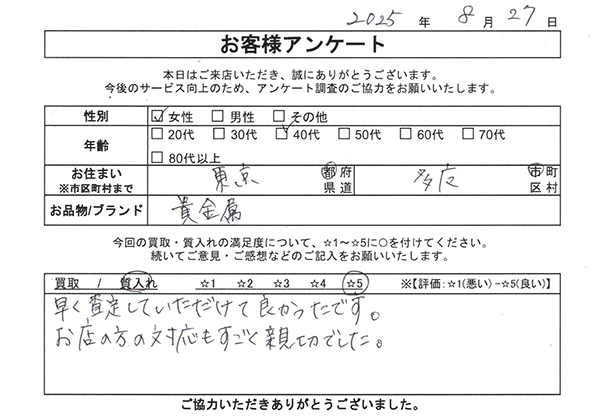 2025 年 8 月 27 日
お客様アンケート
本日はご来店いただき、誠にありがとうございます。
今後のサービス向上のため、アンケート調査のご協力をお願いいたします。
性別 ☑女性 □男性 □その他
年齢 □20代 □30代 ☑40代 □50代 □60代 □70代
□80代以上
お住まい
※市区町村まで 東京 都府県道 多摩 市町区村
お品物/ブランド 貴金属
今回の買取・質入れの満足度について、☆1～☆5に○を付けてください。
続いてご意見・ご感想などのご記入をお願いいたします。
買取 / 質入れ ☆1 ☆2 ☆3 ☆4 ☆5 ※【評価:☆1(悪い)-☆5(良い)】
早く査定していただけて良かったです。
お店の方の対応もすごく親切でした。
ご協力いただきありがとうございました。